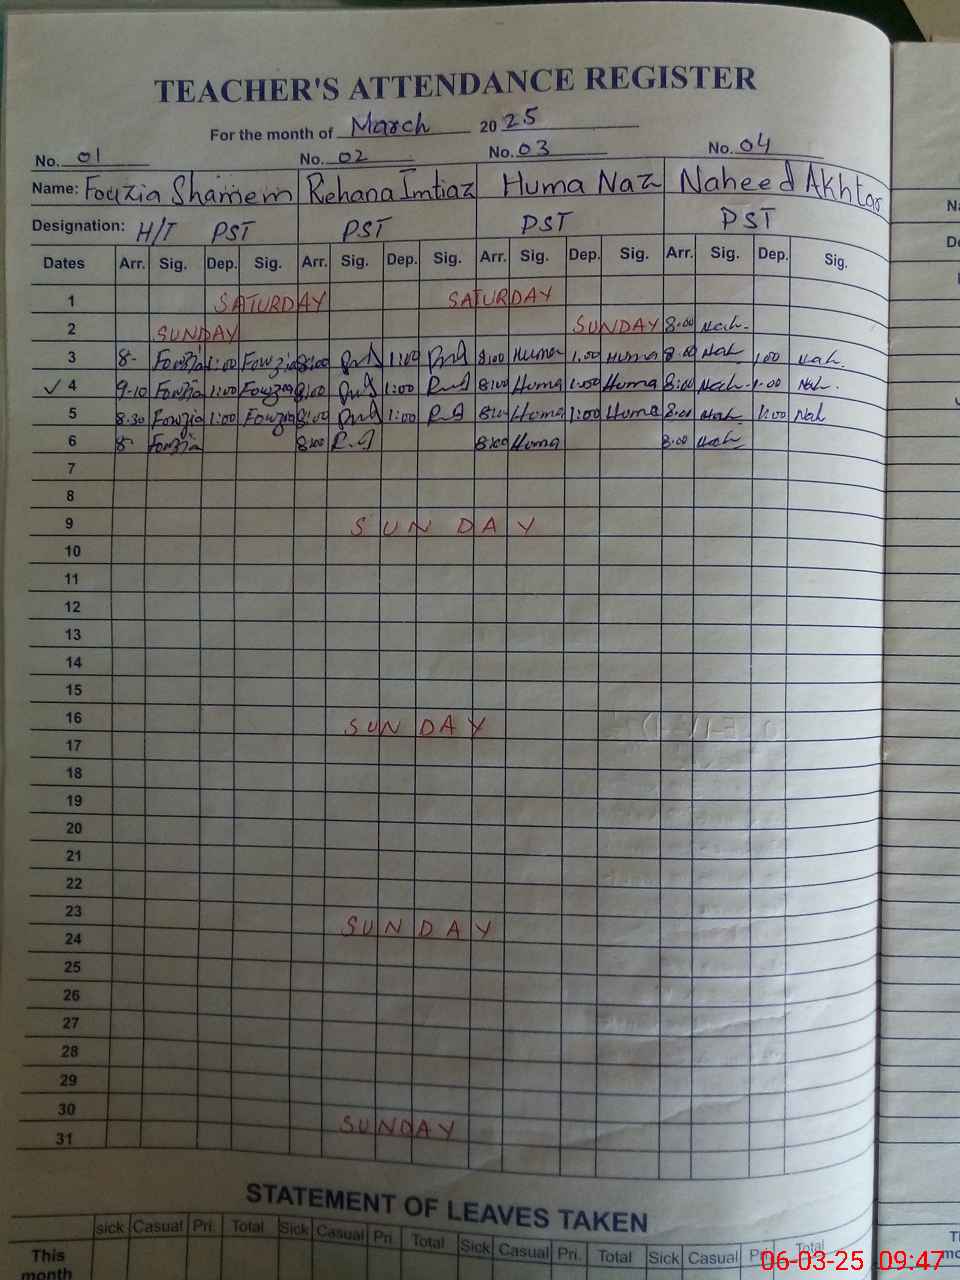 TEACHER'S ATTENDANCE REGISTER
For the month of March 2025
No. 01 No. 02 No. 03 No. 04
Name: Fouzia Shamem Rehana Imtiaz Huma Naz Naheed Akhtar
Designation: H/T PST PST PST PST
Dates Arr. Sig. Dep. Sig. Arr. Sig. Dep. Sig. Arr. Sig. Dep. Sig. Arr. Sig. Dep. Sig.
1 SATURDAY SATURDAY
2 SUNDAY SUNDAY 8:00 Nah.
3 8- Fouzia 1:00 Fouzia 8:00 1:00 8:00 Huma 1:00 Huma 8:00 Nah 1:00 Nah.
✓ 4 9-10 Fouzia 1:00 Fouzia 8:00 1:00 8:00 Huma 1:00 Huma 8:00 Nah 1:00 Nah.
5 8-30 Fouzia 1:00 Fouzia 8:00 1:00 8:00 Huma 1:00 Huma 8:00 Nah 1:00 Nah
6 8- Fouzia 8:00 8:00 Huma 8:00 Nah
7
8
9 SUNDAY
10
11
12
13
14
15
16 SUNDAY
17
18
19
20
21
22
23 SUNDAY
24
25
26
27
28
29
30 SUNDAY
31
STATEMENT OF LEAVES TAKEN
sick Casual Pri. Total Sick Casual Pri Total Sick Casual Pri. Total Sick Casual Pri Total
This month
06-03-25 09:47